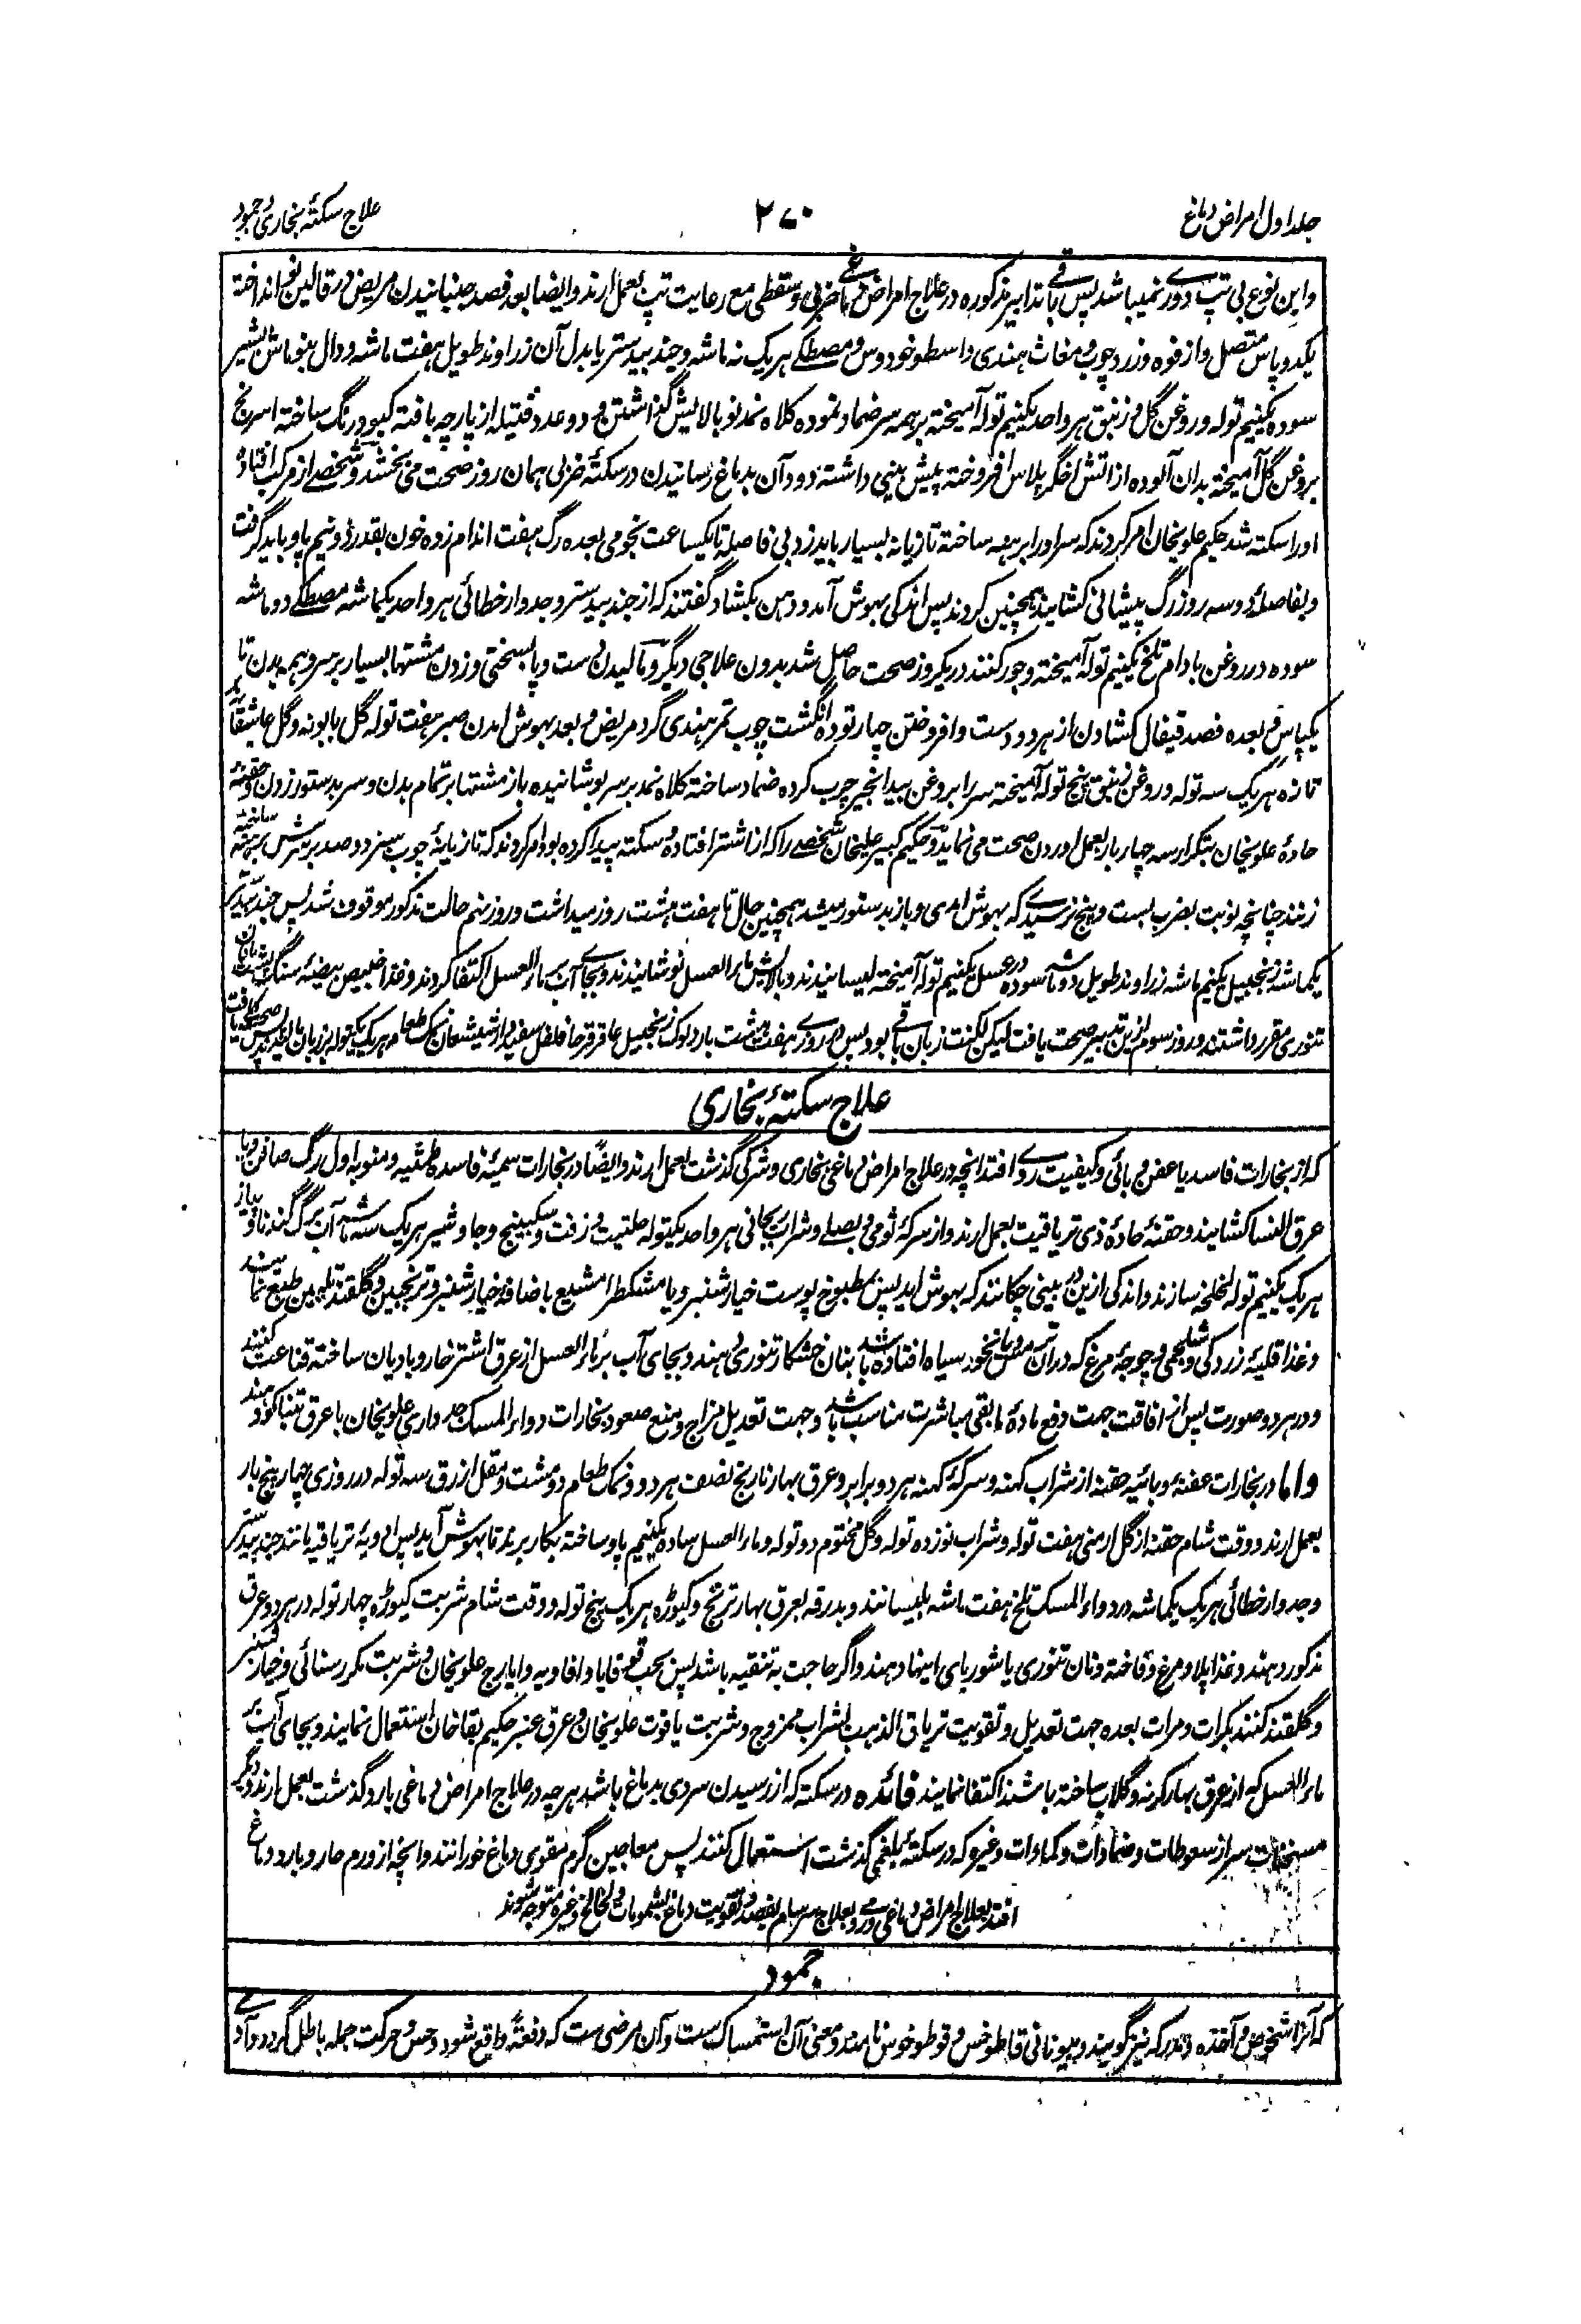 جلد اول امراض دماغ
۲۷۰
علاج سکتهٔ بخاری و جمود
و این نوع بی تپ دوری نمیباشد پس باقی تدابیر مذکوره در علاج امراض دماغی ضربی و سقطی مع رعایت تپ بعمل آرند و ایضا بعد فصد جنبانیدن مریض در قالین نو انداخته
یکدو پاس متصل و از فوه و زردچوب و مغاث هندی و اسطوخودوس و مصطکی هر یک نه ماشه و جند بیدستر یا بدل آن زراوند طویل هفت ماشه و دال بنوماش بشیر
سوده یکنیم توله و روغن گل و زنبق هر واحد یکنیم توله آمیخته بر همه سر ضماد نموده کلاه نمد نو بالایش گذاشتن و دو عدد فتیله از پارچه بافته کبود رنگ ساخته اسرنج
بروغن گل آمیخته بدان آلوده از اتش اخگر پلاس افروخته پیش بینی داشته دود آن بدماغ رسانیدن در سکتهٔ ضربی همان روز صحت می بخشد و شخصے از مرکب افتاده
اورا سکته شد حکیم علویخان امر کردند که سر اورا برهنه ساخته تازیانه بسیار باید زد بی فاصله تا یکساعت نجومی بعده رگ هفت اندام زده خون بقدر دو نیم پاو باید گرفت
و بفاصله دو سه روز رگ پیشانی کشایند همچنین کردند پس اندکی بهوش آمد و دهن بکشاد گفتند که از جند بیدستر و جدوار خطائی هر واحد یکماشه مصطکے دو ماشه
سوده در روغن بادام تلخ یکنیم توله آمیخته وجور کنند در یکروز صحت حاصل شد بدون علاجی دیگر و مالیدن دست و پا بسختی و زدن مشتها بسیار بر سر و همه بدن تا
یکپاس و بعده فصد قیفال کشادن از هر دو دست و افروختن چهار توده انگشت چوب تمر هندی گرد مریض و بعد بهوش امدن صبر هفت توله گل بابونه و گل عاشقان
تازه هر یک سه توله و روغن زنبق پنج توله آمیخته سر را بروغن بیدانجیر چرب کرده ضماد ساخته کلاه نمد بر سر پوشانیده باز مشتها بر تمام بدن و سر بدستور زدن و حقنهٔ
حادهٔ علویخان بتکرار سه چهار بار بعمل اوردن صحت می نماید و حکیم کبیر علیخان شخصے را که از اشتر افتاده سکته پیدا کرده بود امر کردند که تازیانهٔ چوب سبز دو صد بر سرش برهنه ساخته
زنند چنانچه نوبت بضرب بست و پنج نرسیدے که بهوش امدی و باز بدستور میشد همچنین حال تا هفت هشت روز میداشت و روز نهم حالت مذکور موقوف شد پس جند بیدستر
یکماشه زنجبیل یکنیم ماشه زراوند طویل دو ماشه سوده در عسل یکنیم توله آمیخته لیسانیدند و بالایش ماء العسل نوشانیدند و بجاے آب بر ماء العسل اکتفا کردند و غذا خبیص بیضهٔ سنگ پشت با نان
تنوری مقرر داشتند و روز سوم ازین تدبیر صحت یافت لیکن لکنت زبان باقی بود پس در روزے هفت هشت بار دلوک زنجبیل عاقرقرحا فلفل سفید نمک طعام هر یک یکتوله بر زبان صحت یافت
علاج سکتهٔ بخاری
که از بخارات فاسد یا عفن وبائی و کیفیت ردی افتد انچه در علاج امراض دماغی بخاری و شرکی گذشت بعمل ارند و ایضًا در بخارات سمیهٔ فاسده طمثیه و منویه اول رگ صافن و یا
عرق النسا کشایند و حقنهٔ حادهٔ ذی تریاقیت بعمل ارند و از سرکهٔ ثومی و بصلے و شراب ریحانی هر واحد یکتوله حلتیت و زفت و سکبینج و جاوشیر هر یک سه ماشه آب برگ گندنا و پیاز
هر یک یکنیم توله لخلخه سازند و اندکی ازین در بینی چکانند که بهوش اید پس بمطبوخ پوست خیارشنبر و یا مشکطرامشیع باضافه خیارشنبر و ترنجبین و گلقند تلیین طبع نمایند
و غذا قلیهٔ زردکی و شلجمی و چوجهٔ مرغ که دران نانخود سیاه افتاده باشد بنان خشکار تنوری دهند و بجای آب بر ماء العسل از عرق اشتر خار و بادیان ساخته قناعت کنند
و در هر دو صورت پس از افاقت جهت دفع مادهٔ مابقی مباشرت مناسب باشد و جهت تعدیل مزاج و منع صعود بخارات دواء المسک جدواری علویخان با عرق تنباکو دهند
و اما در بخارات عفنه و بائیه حقنه از شراب کهنه و سرکهٔ کهنه هر دو برابر و عرق بهار نارنج نصف هر دو و نمک طعام دو مشت و مقل ازرق سه توله در روزی چهار پنج بار
بعمل ارند و وقت شام حقنه از گل ارمنی هفت توله و شراب نوزده توله و گل مختوم دو توله و ماء العسل ساده یکنیم پاو ساخته بکار برند تا بهوش آید پس ادویهٔ تریاقیه مانند جند بیدستر
و جدوار خطائی هر یک یکماشه در دواء المسک تلخ هفت ماشه بلیسانند و بدرقه بعرق بهار ترنج و کیوڑه هر یک پنج توله و وقت شام شربت کیوڑه چهار توله در هر دو عرق
مذکور دهند و غذا پلاو مرغ و فاخته و نان تنوری یا شوربای اینها دهند و اگر حاجت به تنقیه باشد پس بحب قوقایا و افاویه و ایارج علویخان و شربت مکرر سنائی و خیارشنبر
و گلقند کنند بکرات و مرات بعده جهت تعدیل و تقویت تریاق الذهب بشراب ممزوج و شربت یاقوت علویخان و عرق عنبر حکیم بقا خان استعمال نمایند و بجای آب بر
ماء العسل که از عرق بهار کرنه و گلاب ساخته باشند اکتفا نمایند فائده در سکته که از رسیدن سردی بدماغ باشد هر چه در علاج امراض دماغی بارد گذشت بعمل ارند و دیگر
مسخنات سر از سعوطات و ضمادات و کمادات و غیره که در سکتهٔ بلغمی گذشت استعمال کنند پس معاجین گرم مقوی دماغ خورانند و انچه از ورم حار و بارد دماغ
افتد بعلاج امراض دماغی ورمی و بعلاج سرسام بفصد و تقویت دماغ بشمومات و لخالخ و غیره متوجه شوند
جمود
که آنرا شخوص و آخذه و مدرکه نیز گویند و بیونانی قاطوخس و قوطوخوس نامند و معنی آن استمساک ست و آن مرضی ست که دفعةً واقع شود و حس و حرکت جمله باطل گردد و آدمے